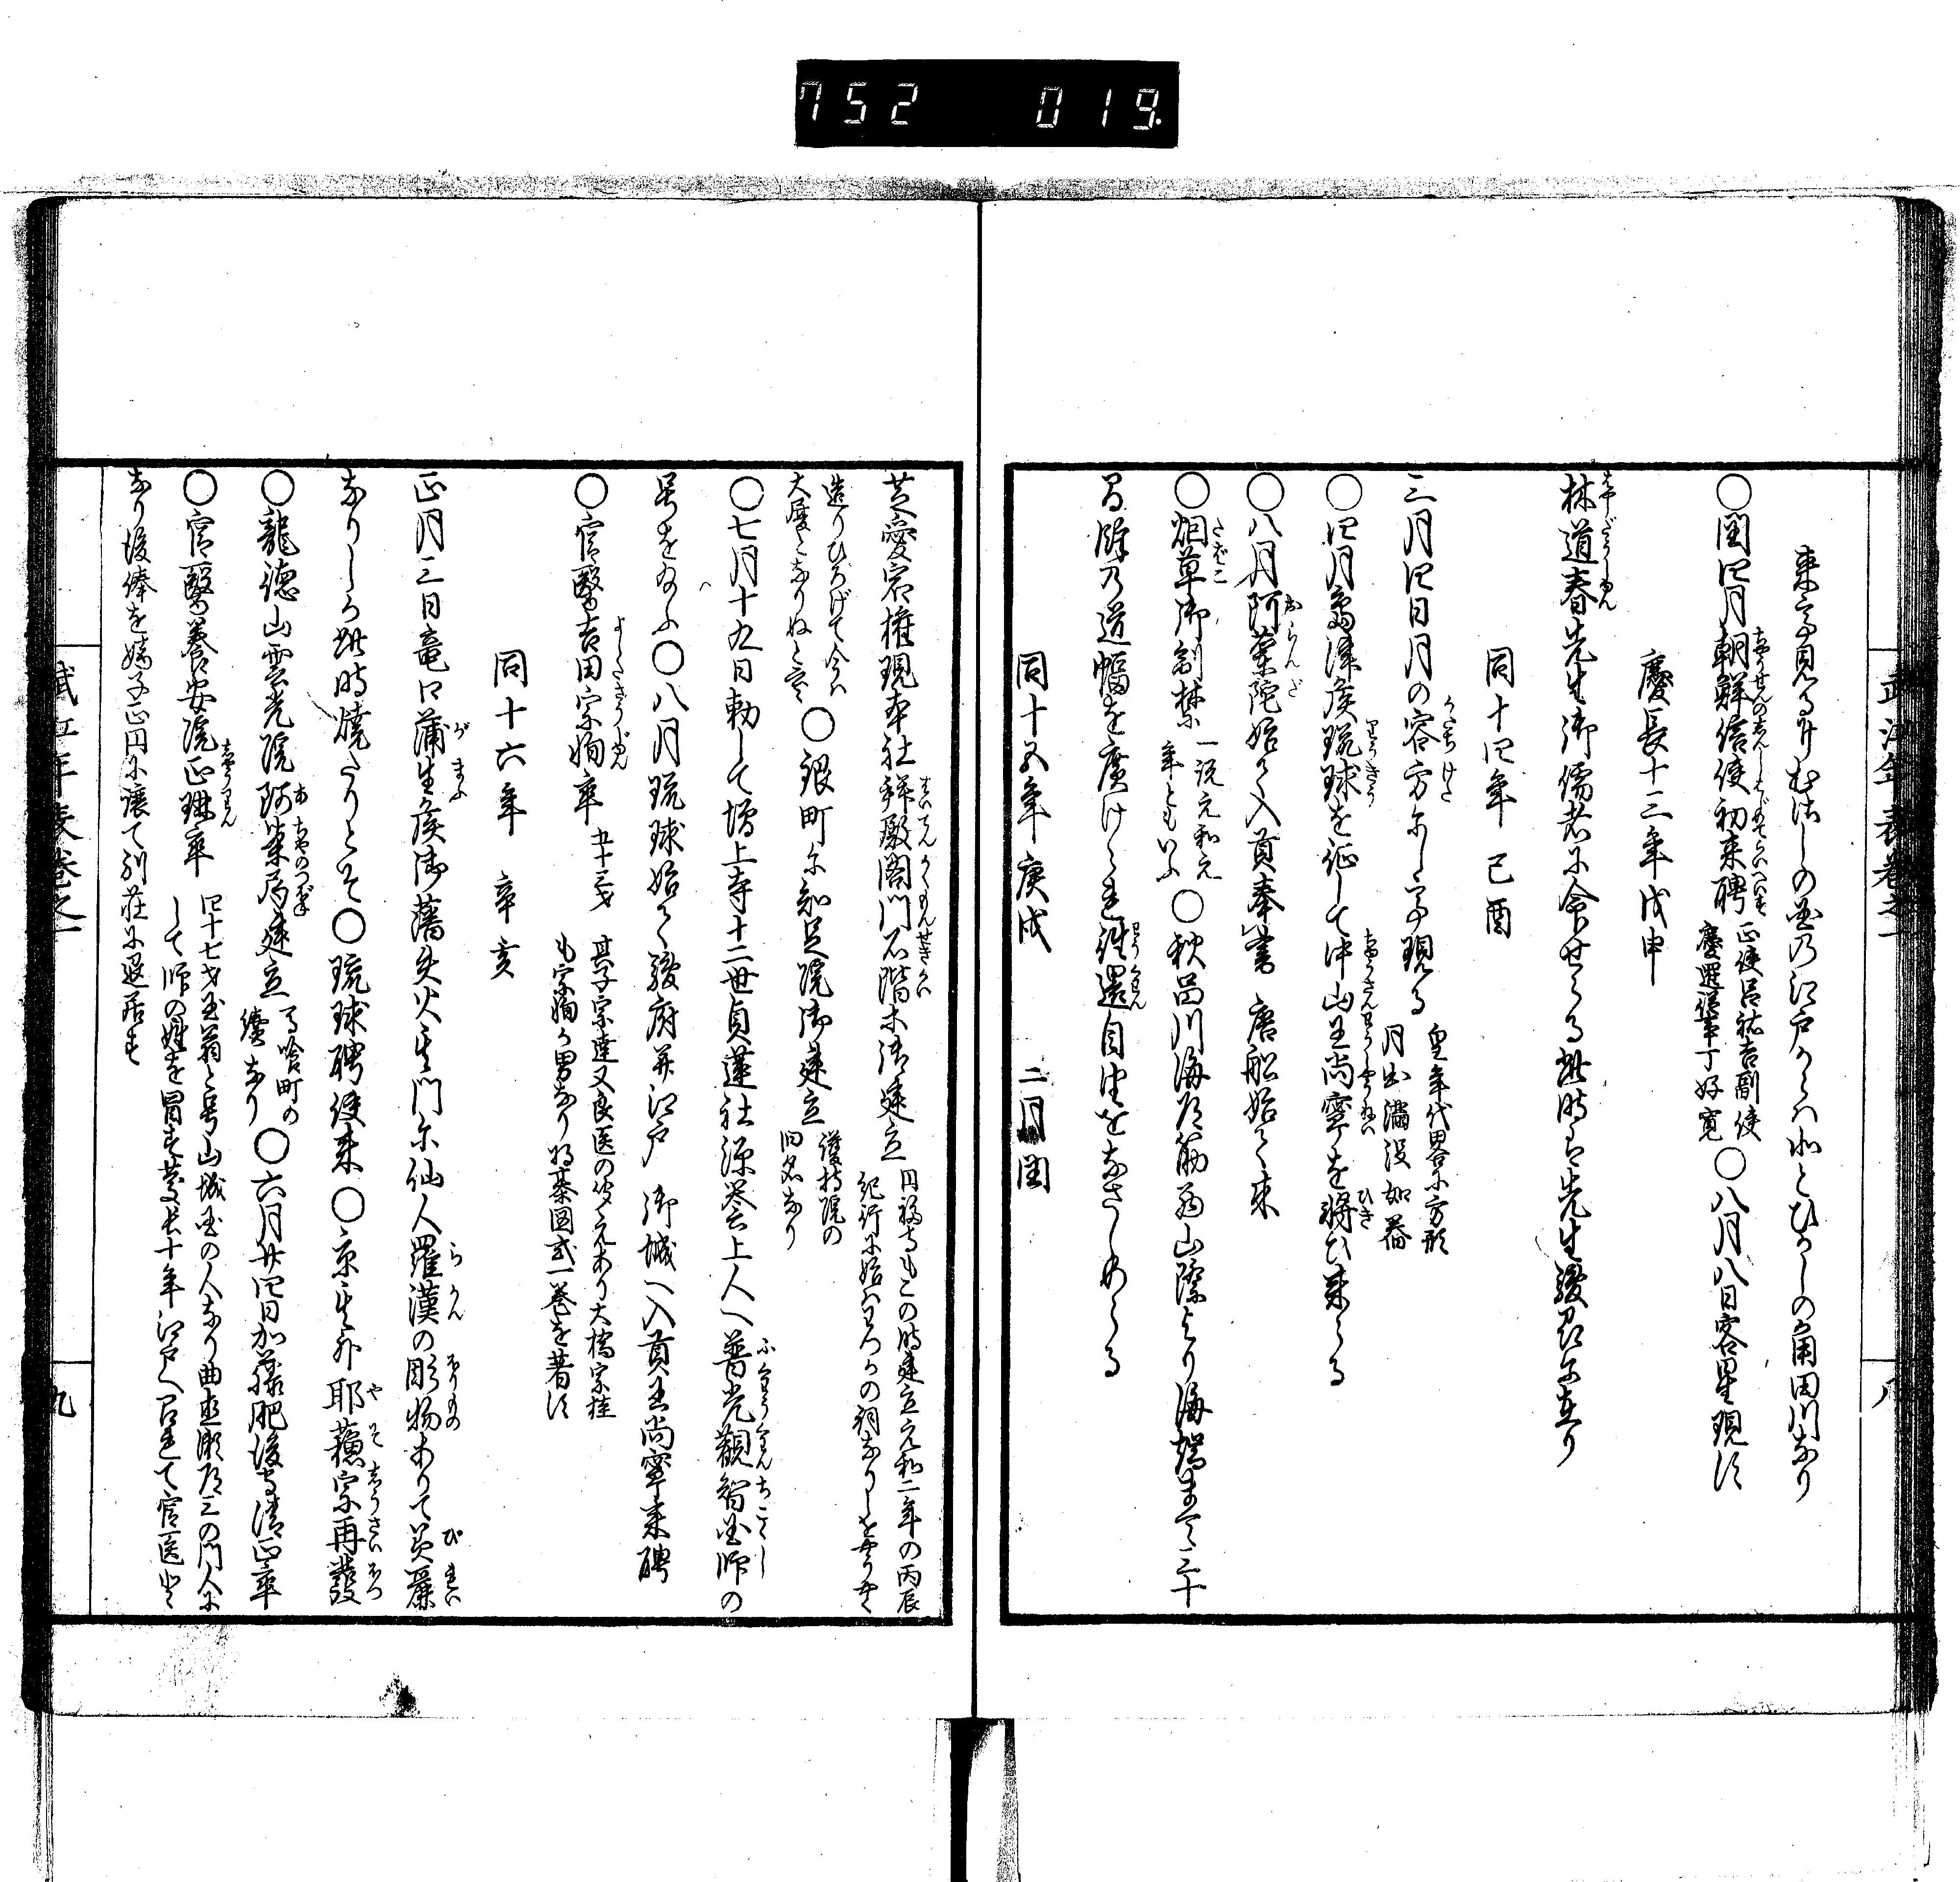 752 019.
武江年表巻之一
八
来て見るにむさしの国の江戸からハ北とひかしの角田川なり
○閏四月朝鮮信使初来聘 正使呂祐吉副使
慶暹従事丁好寛 ○八月八日客星現ず
慶長十三年戊申
林道春先生御儒者に令せらる此時は先生駿府に在り
同十四年 己酉
三月四日月の容方にして現る 皇年代畧に方形
月出満没如番
○四月島津侯琉球を征して中山王尚寧を将ひ来る
○八月阿蘭陀始て入貢奉書 唐船始て来
○烟草御制禁 一説元和元
年ともいふ ○秋品川海道筋西山際より海端まて三十
間餘の道幅を廣けられ往還自由をなさしめらる
同十五年庚戌 二月閏
芝愛宕権現本社拝殿閣門石階等御建立 円福寺もこの時建立元和二年の丙辰
紀行に始ハわつかの祠なりしを
造りひろげて今ハ
大厦となりぬと云々 ○銀町に知足院御建立 護持院の
旧名なり
○七月十九日勅して増上寺十二世貞蓮社源誉上人へ普光観智国師の
号を給ふ○八月琉球始て駿府并江戸 御城へ入貢王尚寧来聘
○官醫吉田宗恂卒 五十三才 其子宗達又良医の聞えあり大橋宗桂
も宗恂の男なり将棊図式一巻を著す
同十六年 辛亥
正月三日竜口蒲生侯御藩失火其門に仙人羅漢の彫物ありて美麗
なりしか此時焼たりとぞ○琉球聘使来○京其外耶蘓宗再發
○龍徳山雲光院阿茶局建立 馬喰町の
續なり ○六月廿四日加藤肥後守清正卒
○官醫養安院正琳卒 四十七才玉翁と号山城国の人なり曲直瀬道三の門人に
して師の姓を冒す慶長十年江戸へ召されて官医と
なり後俸を嫡子正円に譲て別荘に退居す
武江年表巻之一
九